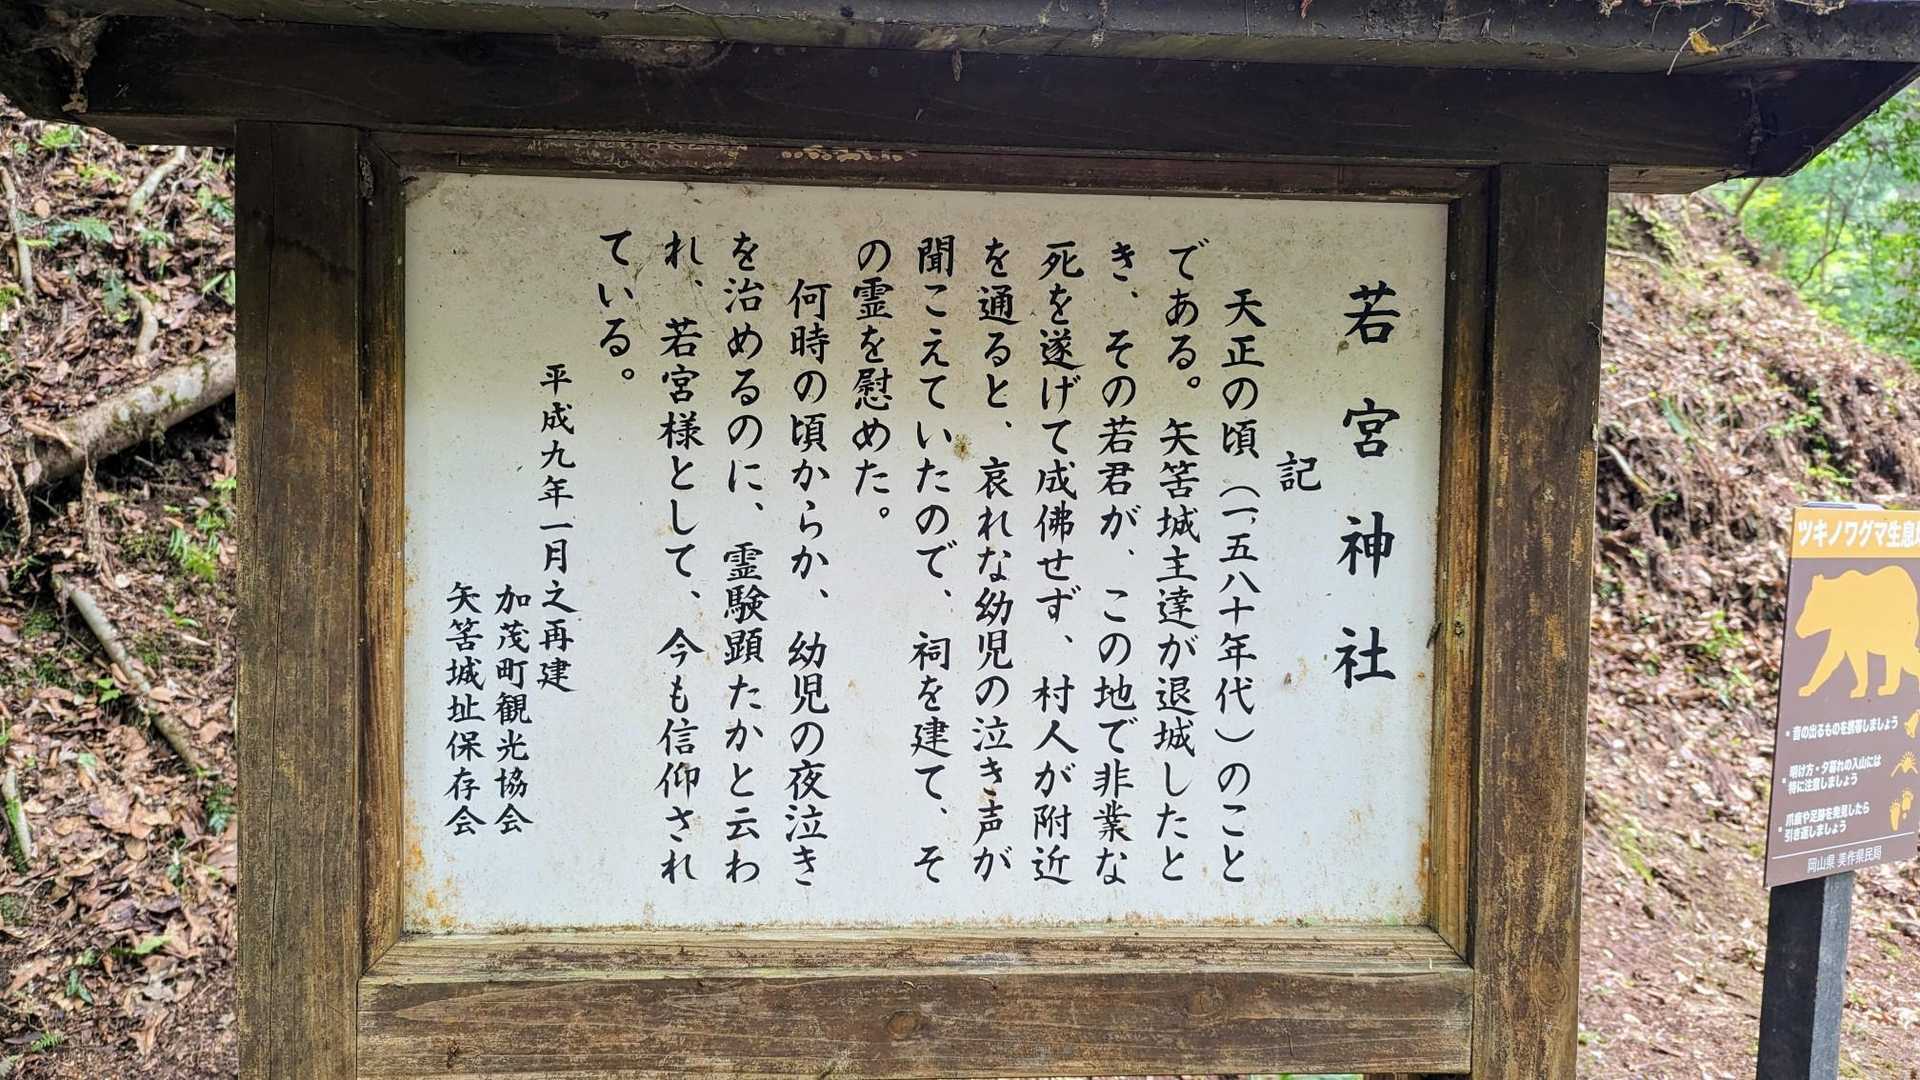 若宮神社
記
天正の頃(一、五八十年代)のこと
である。矢筈城主達が退城したと
き、その若君が、この地で非業な
死を遂げて成佛せず、村人が附近
を通ると、哀れな幼児の泣き声が
聞こえていたので、祠を建て、そ
の霊を慰めた。
何時の頃からか、幼児の夜泣き
を治めるのに、霊験顕たかと云わ
れ、若宮様として、今も信仰され
ている。
平成九年一月之再建
加茂町観光協会
矢筈城址保存会
ツキノワグマ生息
・音の出るものを携帯しましょう
・明け方・夕暮れの入山には
特に注意しましょう
・爪痕や足跡を発見したら
引き返しましょう
岡山県 美作県民局